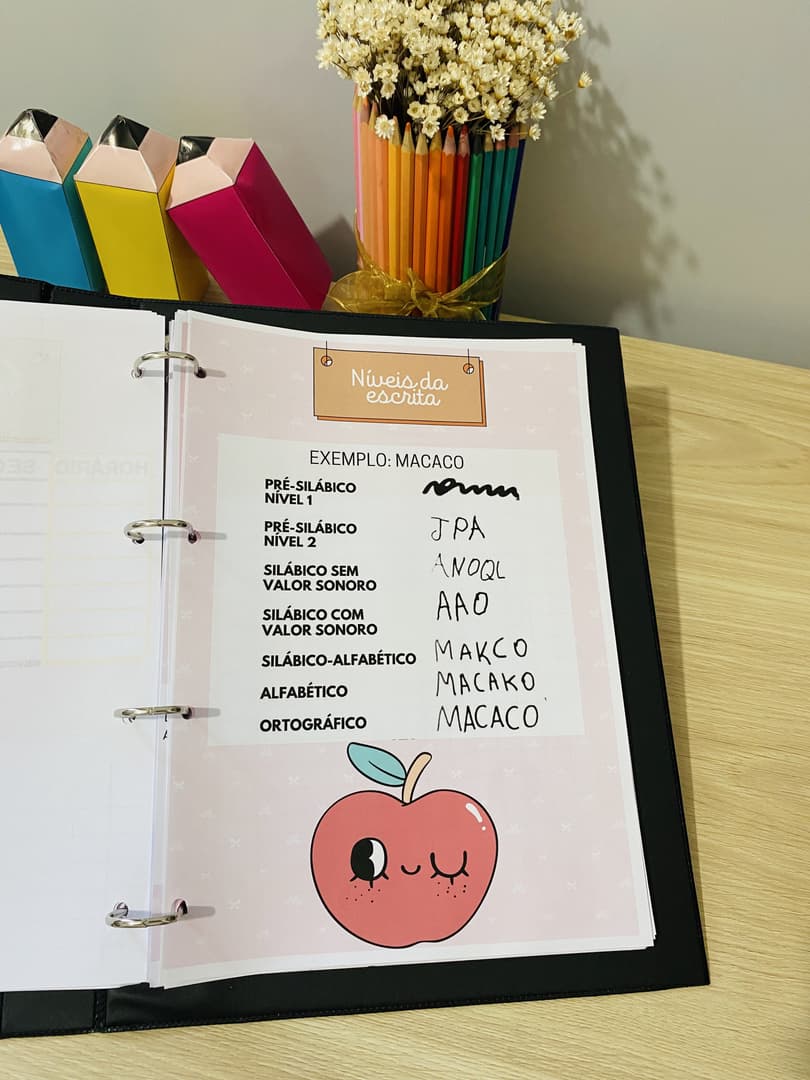 Níveis da
escrita
EXEMPLO: MACACO
PRÉ-SILÁBICO
NÍVEL 1
PRÉ-SILÁBICO
NÍVEL 2
JPA
SILÁBICO SEM
VALOR SONORO
ANOQL
SILÁBICO COM
VALOR SONORO
AAO
SILÁBICO-ALFABÉTICO MAKCO
ALFABÉTICO MACAKO
ORTOGRÁFICO MACACO
HORÁRIO